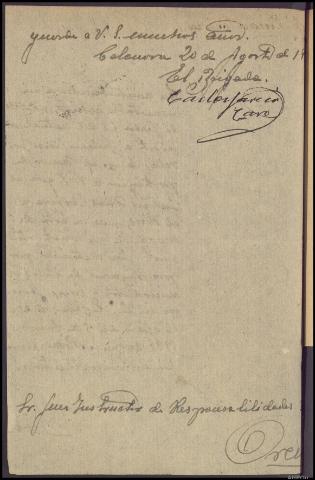 guarde a V. S. muchos años.
Celanova 20 de Agosto de 19
El Brigada.
Carlos García
Caro
Sr. Juez Instructor de Responsabilidades
Oren